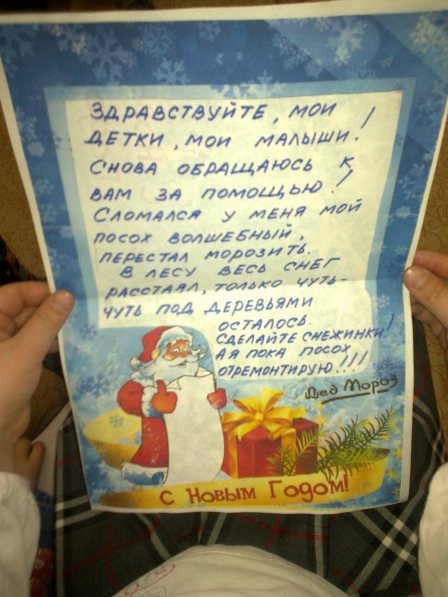 ЗДРАВСТВУЙТЕ, МОИ
ДЕТКИ, МОИ МАЛЫШИ!
СНОВА ОБРАЩАЮСЬ К
ВАМ ЗА ПОМОЩЬЮ!
СЛОМАЛСЯ У МЕНЯ МОЙ
ПОСОХ ВОЛШЕБНЫЙ,
ПЕРЕСТАЛ МОРОЗИТЬ.
В ЛЕСУ ВЕСЬ СНЕГ
РАССТАЯЛ, ТОЛЬКО ЧУТЬ-
ЧУТЬ ПОД ДЕРЕВЬЯМИ
ОСТАЛОСЬ.
СДЕЛАЙТЕ СНЕЖИНКИ!
А Я ПОКА ПОСОХ
ОТРЕМОНТИРУЮ!!!
Дед Мороз
С Новым Годом!